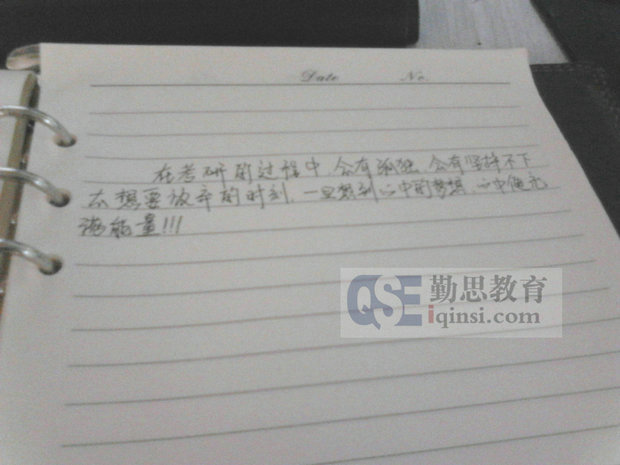 Date No.
在考研的过程中会有孤独,会有坚持不下
去想要放弃的时刻,一旦想到心中的梦想,心中便充
满能量!!!
QSE 勤思教育
iqinsi.com